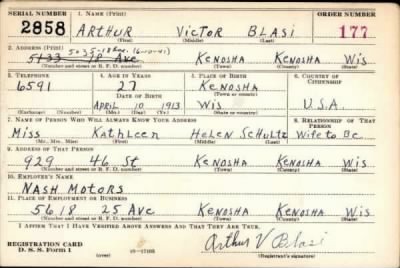 SERIAL NUMBER 1. NAME (Print) ORDER NUMBER
2858 ARTHUR VICTOR BLASI 177
(First) (Middle) (Last)
2. ADDRESS (Print) 5035-18 Ave. 16-0-41)
5133 18 Ave KENOSHA KENOSHA WIS
(Number and street or R. F. D. number) (Town) (County) (State)
3. TELEPHONE 4. AGE IN YEARS 5. PLACE OF BIRTH 6. COUNTRY OF CITIZENSHIP
6591 27 KENOSHA
DATE OF BIRTH (Town or county)
APRIL 10 1913 WIS U.S.A.
(Exchange) (Number) (Mo.) (Day) (Yr.) (State or country)
7. NAME OF PERSON WHO WILL ALWAYS KNOW YOUR ADDRESS 8. RELATIONSHIP OF THAT PERSON
Miss Kathleen Helen Schultz Wife to Be
(Mr., Mrs., Miss) (First) (Middle) (Last)
9. ADDRESS OF THAT PERSON
929 46 St KENOSHA KENOSHA WIS
(Number and street or R. F. D. number) (Town) (County) (State)
10. EMPLOYER'S NAME
NASH MOTORS
11. PLACE OF EMPLOYMENT OR BUSINESS
5618 25 Ave KENOSHA KENOSHA WIS
(Number and street or R. F. D. number) (Town) (County) (State)
I AFFIRM THAT I HAVE VERIFIED ABOVE ANSWERS AND THAT THEY ARE TRUE.
REGISTRATION CARD
D. S. S. Form 1 (over) 16-17105 Arthur V Blasi
(Registrant's signature)